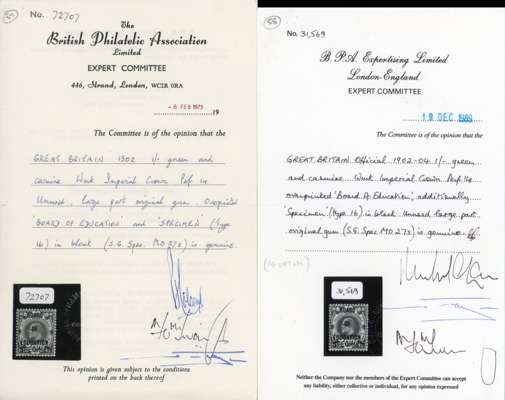 No. 72707
The
British Philatelic Association
Limited
EXPERT COMMITTEE
446, Strand, London, WC2R 0RA
-8 FEB 1973
19
The Committee is of the opinion that the
GREAT BRITAIN 1902 1/- green and
carmine Wmk Imperial Crown Perf 14
Unused, large part original gum, Overprinted
'BOARD OF EDUCATION' and 'SPECIMEN' (type
16) in black (S.G. Spec. MO27s) is genuine.
72707
This opinion is given subject to the conditions
printed on the back thereof
56
No. 31,569
B. P. A. Expertising Limited
London-England
EXPERT COMMITTEE
DEC. 1989
The Committee is of the opinion that the
GREAT BRITAIN Official 1902-04 1/- green
and carmine Wmk Imperial Crown Perf. 14
overprinted 'Board of Education', additionally
'Specimen' (type 16) in black Unused large part
original gum (S.G. Spec MO27s) is genuine.
31,569
Neither the Company nor the members of the Expert Committee can accept
any liability, either collective or individual, for any opinion expressed